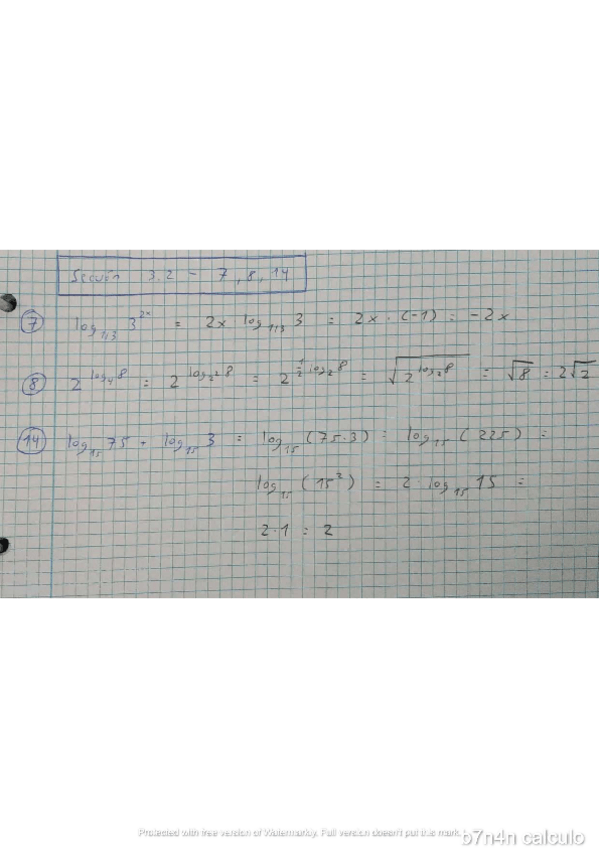 Sección 3.2 - 7, 8, 14
7 log_{1/3} 3^{2x} = 2x · log_{1/3} 3 = 2x · (-1) = -2x
8 2^{log_4 8} = 2^{log_{2^2} 8} = 2^{1/2 log_2 8} = √(2^{log_2 8}) = √8 = 2√2
14 log_{15} 75 + log_{15} 3 = log_{15} (75·3) = log_{15} (225) =
log_{15} (15^2) = 2 · log_{15} 15 =
2·1 = 2
Protected with free version of Watermarkly. Full version doesn't put this mark.
b7n4n calculo